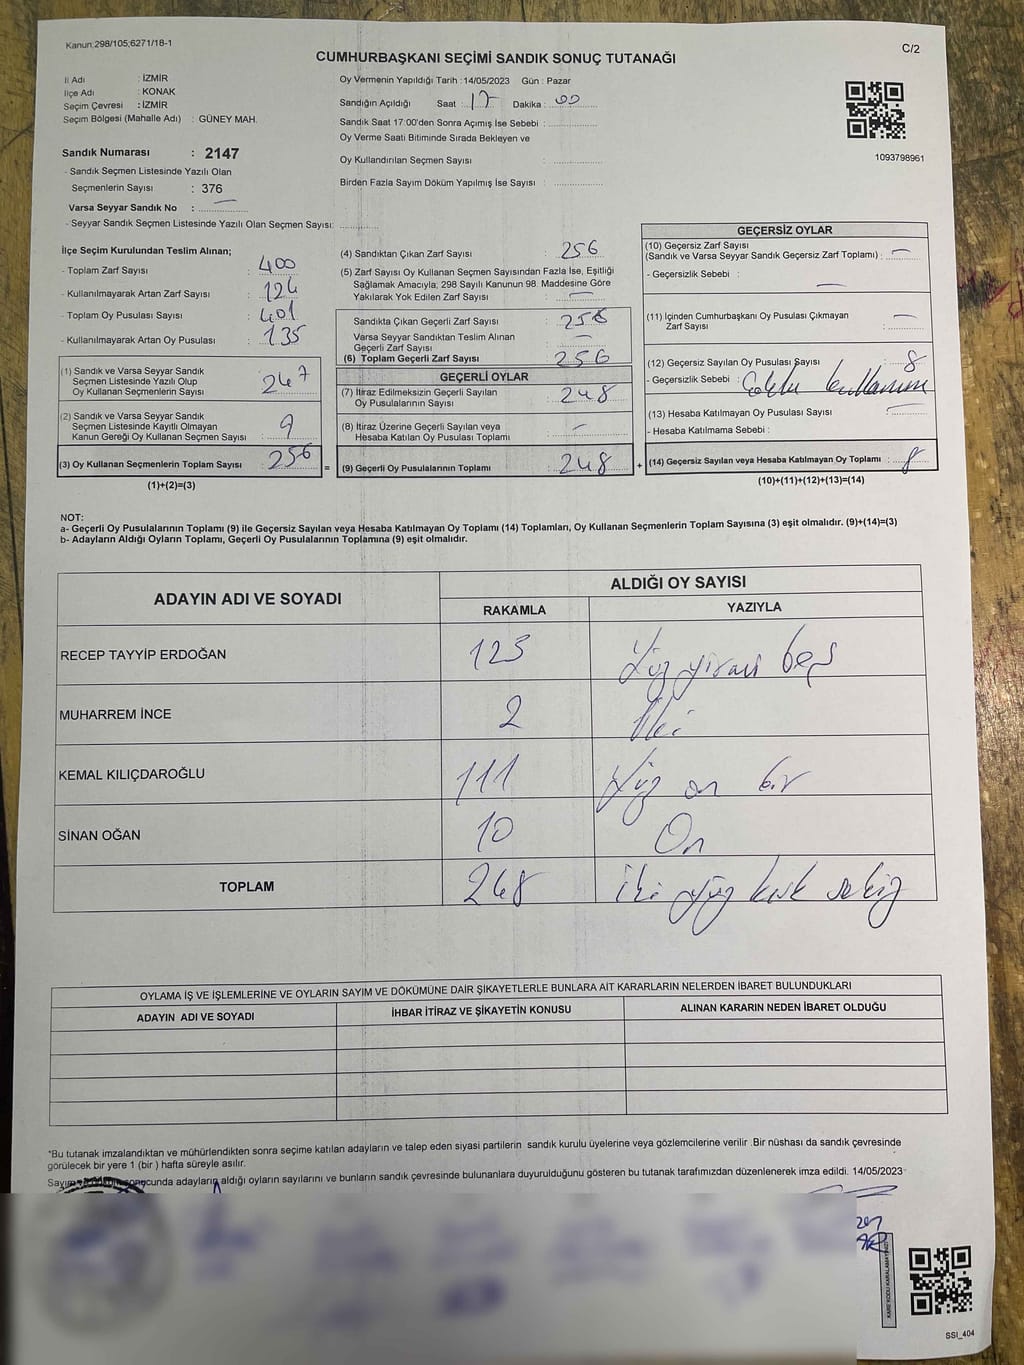 Kanun:298/105;6271/18-1
C/2
CUMHURBAŞKANI SEÇİMİ SANDIK SONUÇ TUTANAĞI
İl Adı : İZMİR
İlçe Adı : KONAK
Seçim Çevresi : İZMİR
Seçim Bölgesi (Mahalle Adı) : GÜNEY MAH.
Sandık Numarası : 2147
- Sandık Seçmen Listesinde Yazılı Olan
Seçmenlerin Sayısı : 376
Varsa Seyyar Sandık No : —
- Seyyar Sandık Seçmen Listesinde Yazılı Olan Seçmen Sayısı:
Oy Vermenin Yapıldığı Tarih :14/05/2023 Gün : Pazar
Sandığın Açıldığı Saat : 17 Dakika : 00
Sandık Saat 17:00'den Sonra Açımış İse Sebebi :
Oy Verme Saati Bitiminde Sırada Bekleyen ve
Oy Kullandırılan Seçmen Sayısı :
Birden Fazla Sayım Döküm Yapılmış İse Sayısı :
1093798961
İlçe Seçim Kurulundan Teslim Alınan;
- Toplam Zarf Sayısı : 400
- Kullanılmayarak Artan Zarf Sayısı : 124
- Toplam Oy Pusulası Sayısı : 401
- Kullanılmayarak Artan Oy Pusulası : 135
(1) Sandık ve Varsa Seyyar Sandık
Seçmen Listesinde Yazılı Olup
Oy Kullanan Seçmenlerin Sayısı : 247
(2) Sandık ve Varsa Seyyar Sandık
Seçmen Listesinde Kayıtlı Olmayan
Kanun Gereği Oy Kullanan Seçmen Sayısı : 9
(3) Oy Kullanan Seçmenlerin Toplam Sayısı : 256
(1)+(2)=(3)
(4) Sandıktan Çıkan Zarf Sayısı : 256
(5) Zarf Sayısı Oy Kullanan Seçmen Sayısından Fazla İse, Eşitliği
Sağlamak Amacıyla; 298 Sayılı Kanunun 98. Maddesine Göre
Yakılarak Yok Edilen Zarf Sayısı : —
Sandıkta Çıkan Geçerli Zarf Sayısı : 256
Varsa Seyyar Sandıktan Teslim Alınan
Geçerli Zarf Sayısı : —
(6) Toplam Geçerli Zarf Sayısı : 256
GEÇERLİ OYLAR
(7) İtiraz Edilmeksizin Geçerli Sayılan
Oy Pusulalarının Sayısı : 248
(8) İtiraz Üzerine Geçerli Sayılan veya
Hesaba Katılan Oy Pusulası Toplamı : —
= (9) Geçerli Oy Pusulalarının Toplamı : 248 +
GEÇERSİZ OYLAR
(10) Geçersiz Zarf Sayısı
(Sandık ve Varsa Seyyar Sandık Geçersiz Zarf Toplamı) : —
- Geçersizlik Sebebi : —
(11) İçinden Cumhurbaşkanı Oy Pusulası Çıkmayan
Zarf Sayısı : —
(12) Geçersiz Sayılan Oy Pusulası Sayısı : 8
- Geçersizlik Sebebi : kullanım
(13) Hesaba Katılmayan Oy Pusulası Sayısı : —
- Hesaba Katılmama Sebebi :
(14) Geçersiz Sayılan veya Hesaba Katılmayan Oy Toplamı : 8
(10)+(11)+(12)+(13)=(14)
NOT:
a- Geçerli Oy Pusulalarının Toplamı (9) ile Geçersiz Sayılan veya Hesaba Katılmayan Oy Toplamı (14) Toplamları, Oy Kullanan Seçmenlerin Toplam Sayısına (3) eşit olmalıdır. (9)+(14)=(3)
b- Adayların Aldığı Oyların Toplamı, Geçerli Oy Pusulalarının Toplamına (9) eşit olmalıdır.
ADAYIN ADI VE SOYADI
ALDIĞI OY SAYISI
RAKAMLA YAZIYLA
RECEP TAYYİP ERDOĞAN 125 Yüz yirmi beş
MUHARREM İNCE 2 İki
KEMAL KILIÇDAROĞLU 111 Yüz on bir
SİNAN OĞAN 10 On
TOPLAM 248 İki yüz kırk sekiz
OYLAMA İŞ VE İŞLEMLERİNE VE OYLARIN SAYIM VE DÖKÜMÜNE DAİR ŞİKAYETLERLE BUNLARA AİT KARARLARIN NELERDEN İBARET BULUNDUKLARI
ADAYIN ADI VE SOYADI İHBAR İTİRAZ VE ŞİKAYETİN KONUSU ALINAN KARARIN NEDEN İBARET OLDUĞU
*Bu tutanak imzalandıktan ve mühürlendikten sonra seçime katılan adayların ve talep eden siyasi partilerin sandık kurulu üyelerine veya gözlemcilerine verilir .Bir nüshası da sandık çevresinde
görülecek bir yere 1 (bir ) hafta süreyle asılır.
Sayım ve döküm sonucunda adayların aldığı oyların sayılarını ve bunların sandık çevresinde bulunanlara duyurulduğunu gösteren bu tutanak tarafımızdan düzenlenerek imza edildi. 14/05/2023
KARE KODU KARALAMAYINIZ!
SSI_404